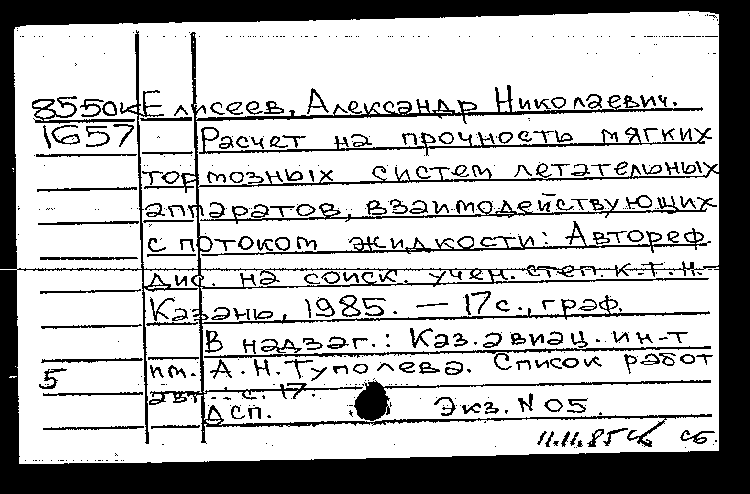 8550к Елисеев, Александр Николаевич.
1657 Расчет на прочность мягких
тормозных систем летательных
аппаратов, взаимодействующих
с потоком жидкости: Автореф.
дис. на соиск. учен. степ. к.т.н.-
Казань, 1985. — 17с., граф.
В надзаг.: Каз. авиац. ин-т
5 им. А.Н. Туполева. Список работ
авт.: с. 17.
ДСП. Экз. N 05.
11.11.85 сб.